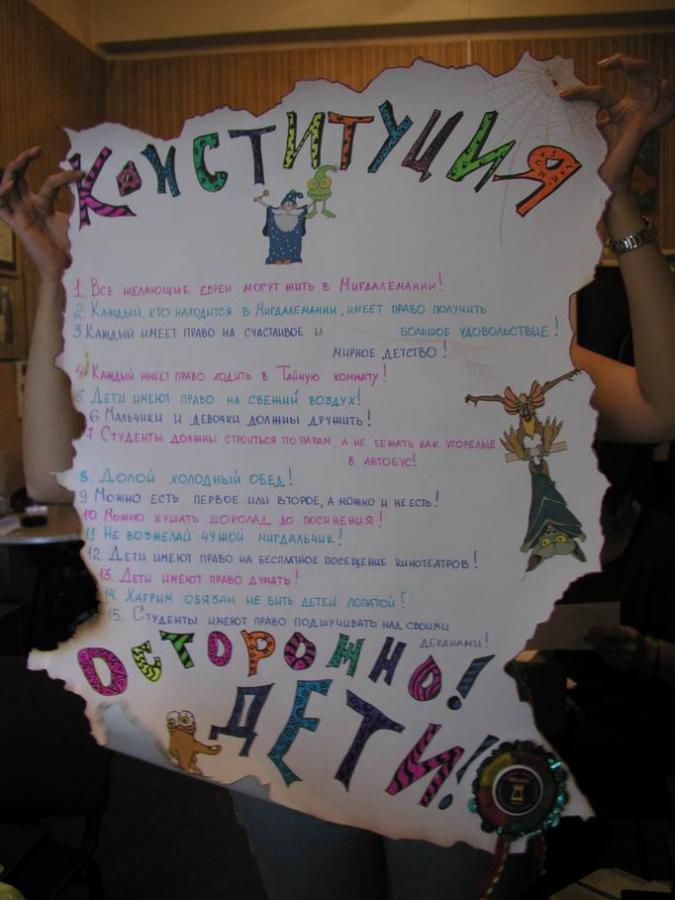 КОНСТИТУЦИЯ
1. Все желающие евреи могут жить в Мигдалемании!
2. Каждый, кто находится в Мигдалемании, имеет право получить
большое удовольствие!
3 Каждый имеет право на счастливое и
мирное детство!
4. Каждый имеет право ходить в Тайную комнату!
5. Дети имеют право на свежий воздух!
6 Мальчики и девочки должны дружить!
7 Студенты должны строиться по парам, а не бежать как угорелые
в автобус!
8. Долой холодный обед!
9 Можно есть первое или второе, а можно и не есть!
10 Можно кушать шоколад до посинения!
11 Не возжелай чужой мигдальчик!
12. Дети имеют право на бесплатное посещение кинотеатров!
13. Дети имеют право думать!
14. Хагрим обязан не бить детей лопатой!
15. Студенты имеют право подшучивать над своими
деканами!
ОСТОРОЖНО!
ДЕТИ!!